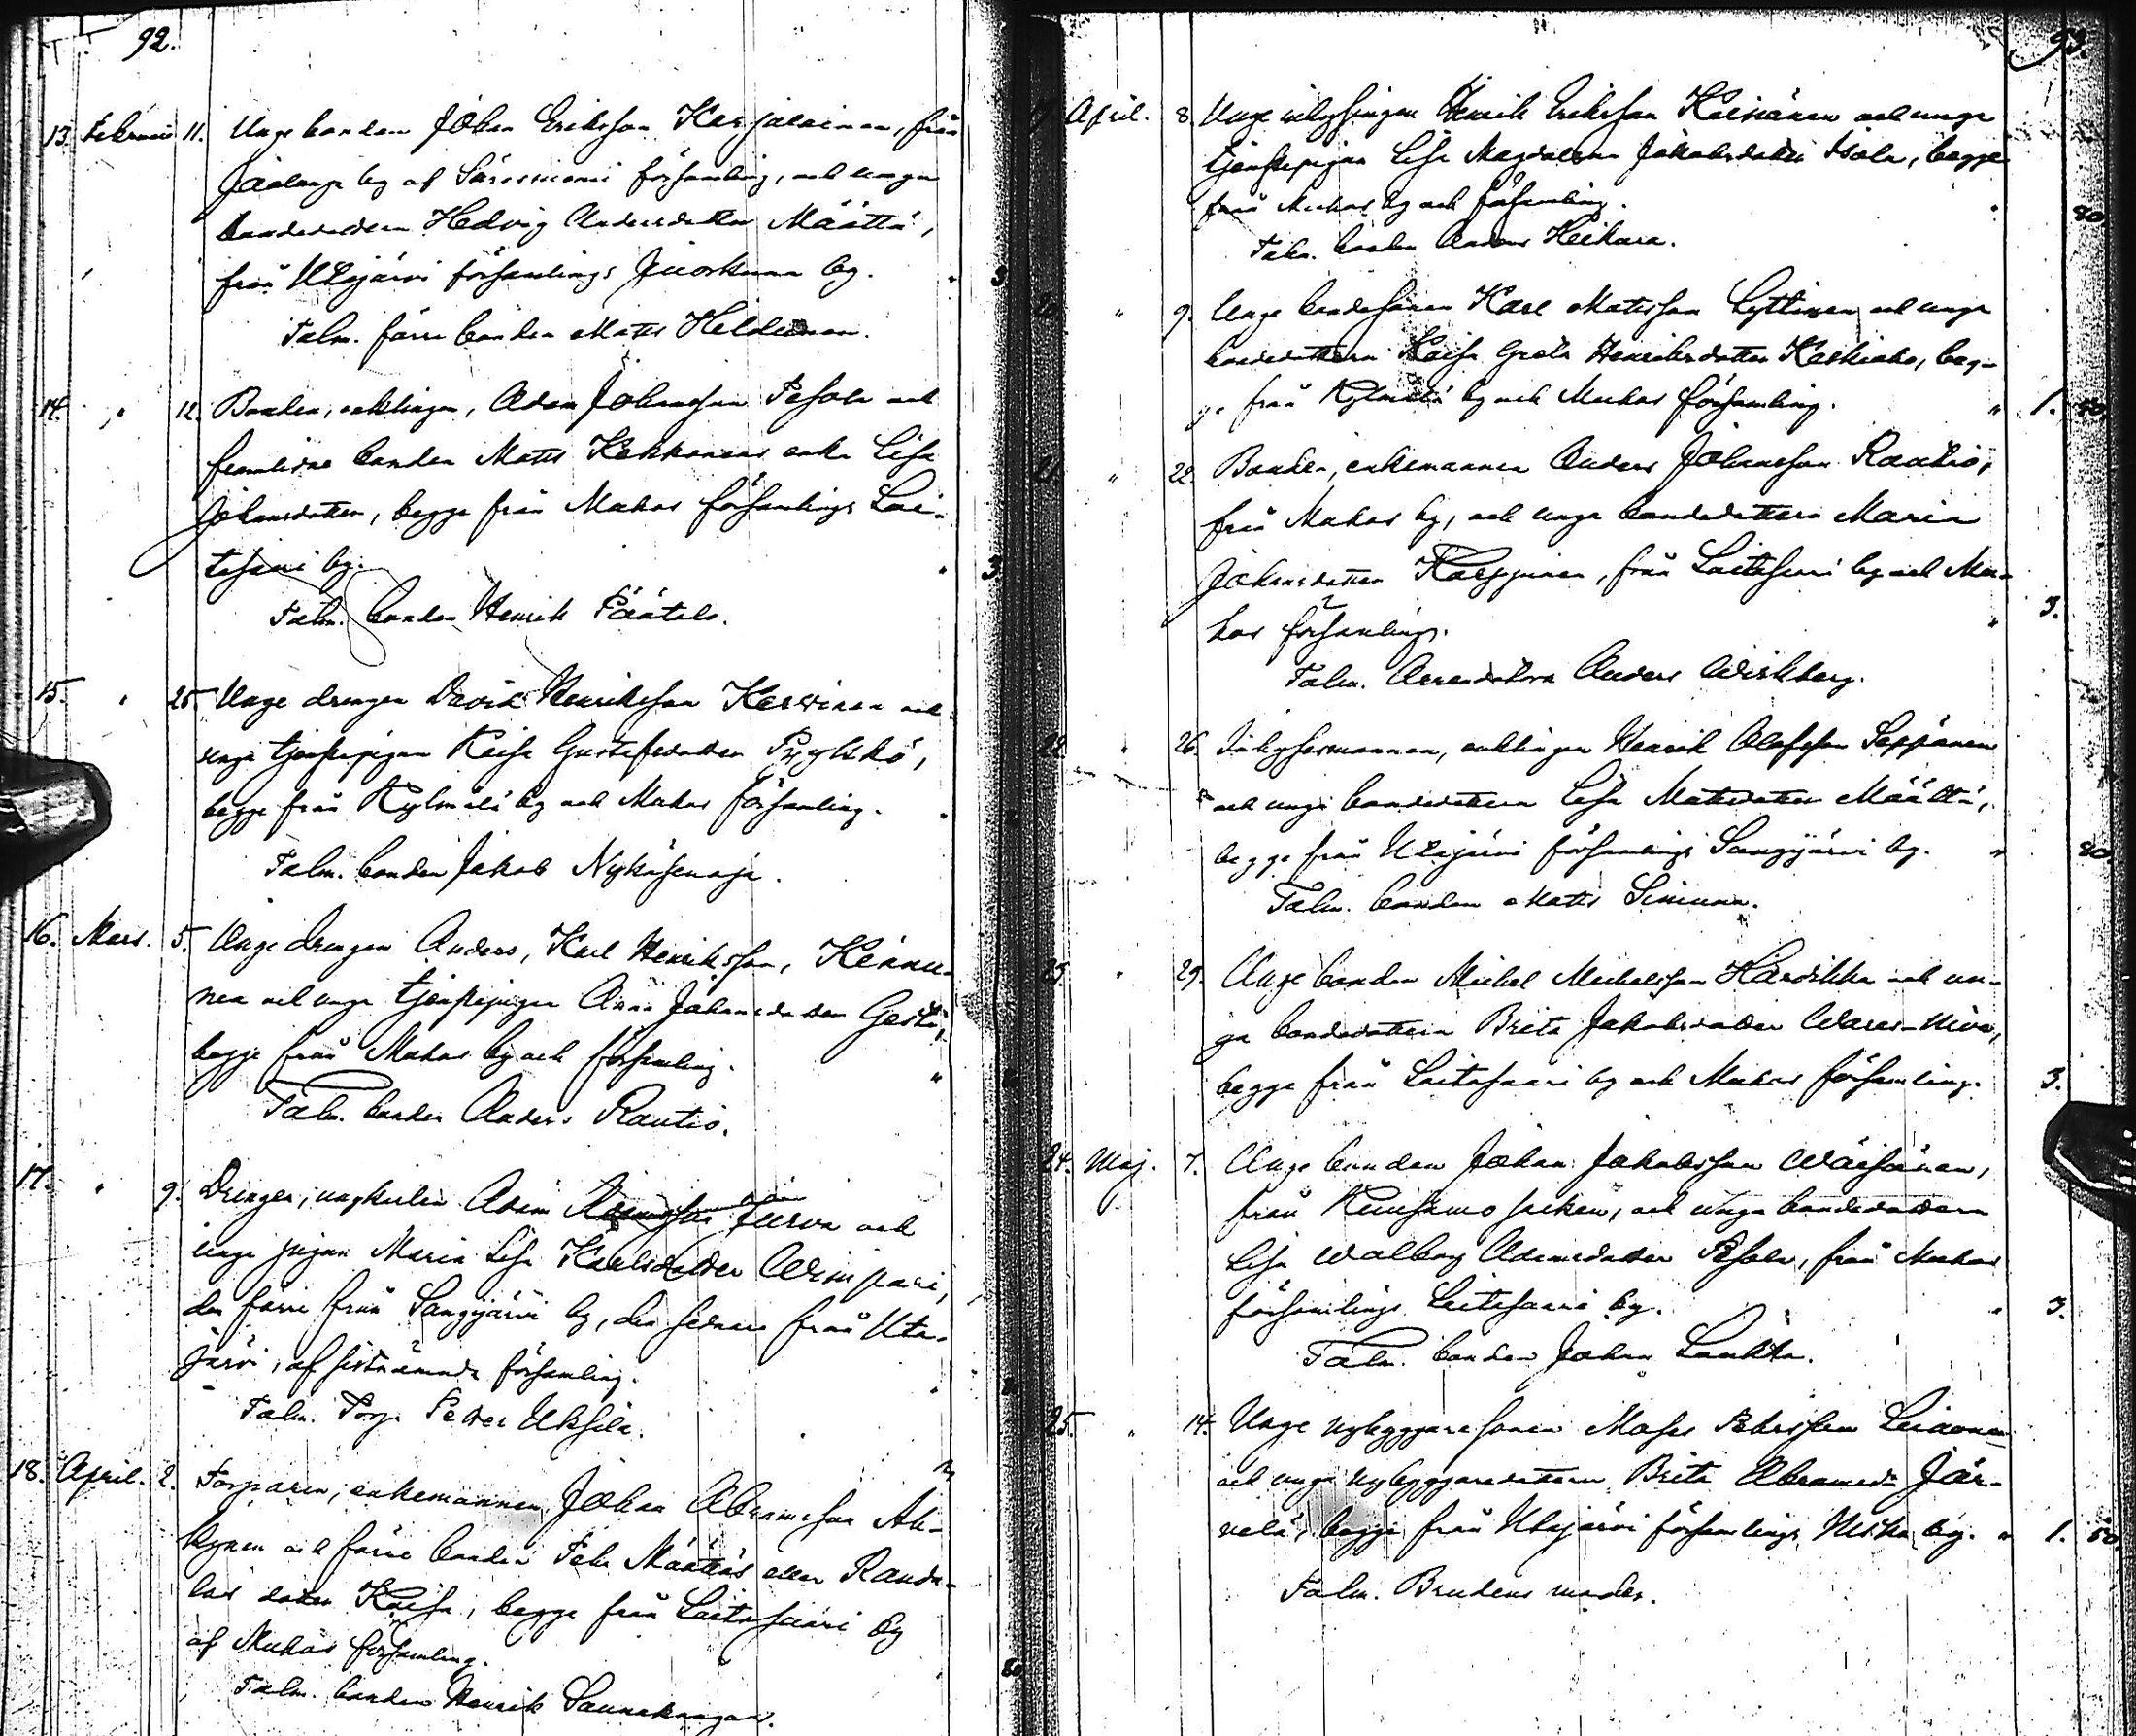 92.
13. Februari 11. Unge bonden Johan Eriksson Karjalainen, från
by af Säresniemi församling, och unga
bondedottren Hedvig Andersdotter Määttä,
från Utajärvi församlings Juorkuna by. " 3
Talm. förre bonden Matts Heldeman.
14. " 12. Bonden, enklingen, Adam Johansson Pesola och
framlidne bonden Matts Kekkonens enka Lisa
Johansdotter, begge från Muhos församlings Lai-
tasaari by. " 3
Talm. bonden Henrik Päätalo.
15. " 25. Unge drengen David Henriksson Karvinen och
unga tjenstepigan Kaisa Gustafsdotter Pyykkö,
begge från Kylmälä by och Muhos församling. "
Talm. bonden Jakob Nykäsenoja.
16. Mars. 5. Unge drengen Anders, Karl Henriksson, Kinnu-
nen och unga tjenstepigan Anna Johansdotter Gesti,
begge från Muhos by och församling. "
Talm. bonden Anders Rautio.
17. " 9. Drengen, ungkarlen Adam Turva och
unga pigan Maria Lisa Karlsdotter Wimpari,
den förre från Sangijärvi by, den sednare från Uta-
järvi, af sistnämnde församling. "
Talm. Torp. Petter Uksila.
18. April. 2. Torparen, enkemannen, Johan Abramsson Ah-
förre bonden Pehr Määttäs eller Rauda-
las dotter Kaisa, begge från Laitasaari by
af Muhos församling. " 80
Talm. bonden Henrik Saunakangas.
93.
19. April. 8. Unge inhysingen Henrik Eriksson Koistinen och unga
tjenstepigan Lisa Magdalena Jakobsdotter Isola, begge
från Muhos by och församling. " 80
Talm. bonden Anders Heikara.
20. " 9. Unge bondesonen Karl Matsson Lyttinen och unga
bondedottren Kaisa Greta Henriksdotter Keskiaho, beg-
ge från Kylmälä by och Muhos församling. " 1. 80
21. " 22. Bonden, enkemannen Anders Johansson Rautio,
från Muhos by, och unga bondedottren Maria
Johansdotter Karppinen, från Laitasaari by och Mu-
hos församling. " 3.
Talm. Arrendatorn Anders Wirkberg.
22. " 26. Inhysesmannen, enklingen Henrik Olofsson Seppänen
och unga bondedottren Lisa Mattsdotter Määttä,
begge från Utajärvi församlings Sangijärvi by. " 80
Talm. bonden Matts Sininen.
23. " 29. Unge bonden Michel Michelsson Härdikka och un-
ga bondedottren Brita Jakobsdotter Wares-Niva,
begge från Laitasaari by och Muhos församling. 3.
24. Maj. 7. Unge bonden Johan Jakobsson Wäisänen,
från Kuusamo socken, och unga bondedottren
Lisa Walborg Adamsdotter Pesola, från Muhos
församlings Laitasaari by. " 3.
Talm. bonden Johan Laukka.
25. " 14. Unge nybyggaresonen Moses Pehrsson Leinonen
och unga nybyggaredottren Brita Abramsdr Jär-
velä, begge från Utajärvi församlings Niska by. " 1. 50
Talm. Brudens moder.